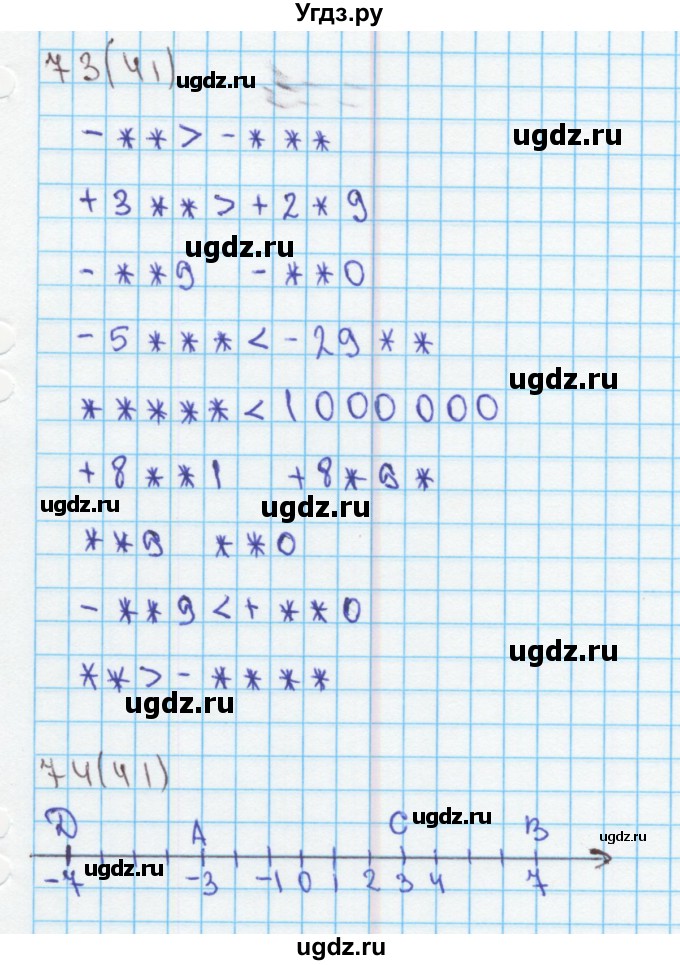 Угдз.ру
73(41)
ugdz.ru
- * * > - * * *
ugdz.ru
+ 3 * * > + 2 * 9
ugdz.ru
- * * 9   - * * 0
- 5 * * * < - 29 * *
ugdz.ru
* * * * * < 1 000 000
+ 8 * * 1   + 8 * 9 *
ugdz.ru ugdz.ru
* * 9   * * 0
- * * 9 < + * * 0
ugdz.ru
* * > - * * * *
ugdz.ru
74(41)
D A C ugdz.ru B ugdz.ru
ugdz.ru
-7 -3 -1 0 1 2 3 4 7
ugdz.ru